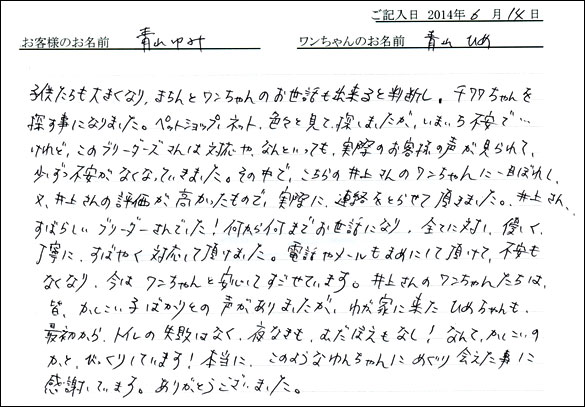 ご記入日 2014年 6 月 14 日
お客様のお名前 青山 ゆみ ワンちゃんのお名前 青山 ひめ
子供たちも大きくなり、きちんとワンちゃんのお世話も出来ると判断し、チワワちゃんを
探す事になりました。ペットショップ、ネット、色々と見て、探しましたが、いまいち不安で…
けれど、このブリーダーズさんは対応や、なんといっても、実際のお客様の声が見られて、
少しずつ不安がなくなっていきました。その中で、こちらの井上さんのワンちゃんに一目ぼれし、
又、井上さんの評価が高かったもので、実際に、連絡をとらせて頂きました。井上さん、
すばらしいブリーダーさんでした!何から何までお世話になり、全てに対し、優しく、
丁寧に、すばやく対応して頂けました。電話やメールもまめにして頂けて、不安も
なくなり、今はワンちゃんと安心してすごせています。井上さんのワンちゃんたちは、
皆、かしこい子ばかりとの声がありましたが、わが家に来たひめちゃんも、
最初から、トイレの失敗はなく、夜なきも、むだぼえもなし!なんて、かしこいの
かと、びっくりしています!本当に、このようなわんちゃんにめぐり会えた事に
感謝しています。ありがとうございました。